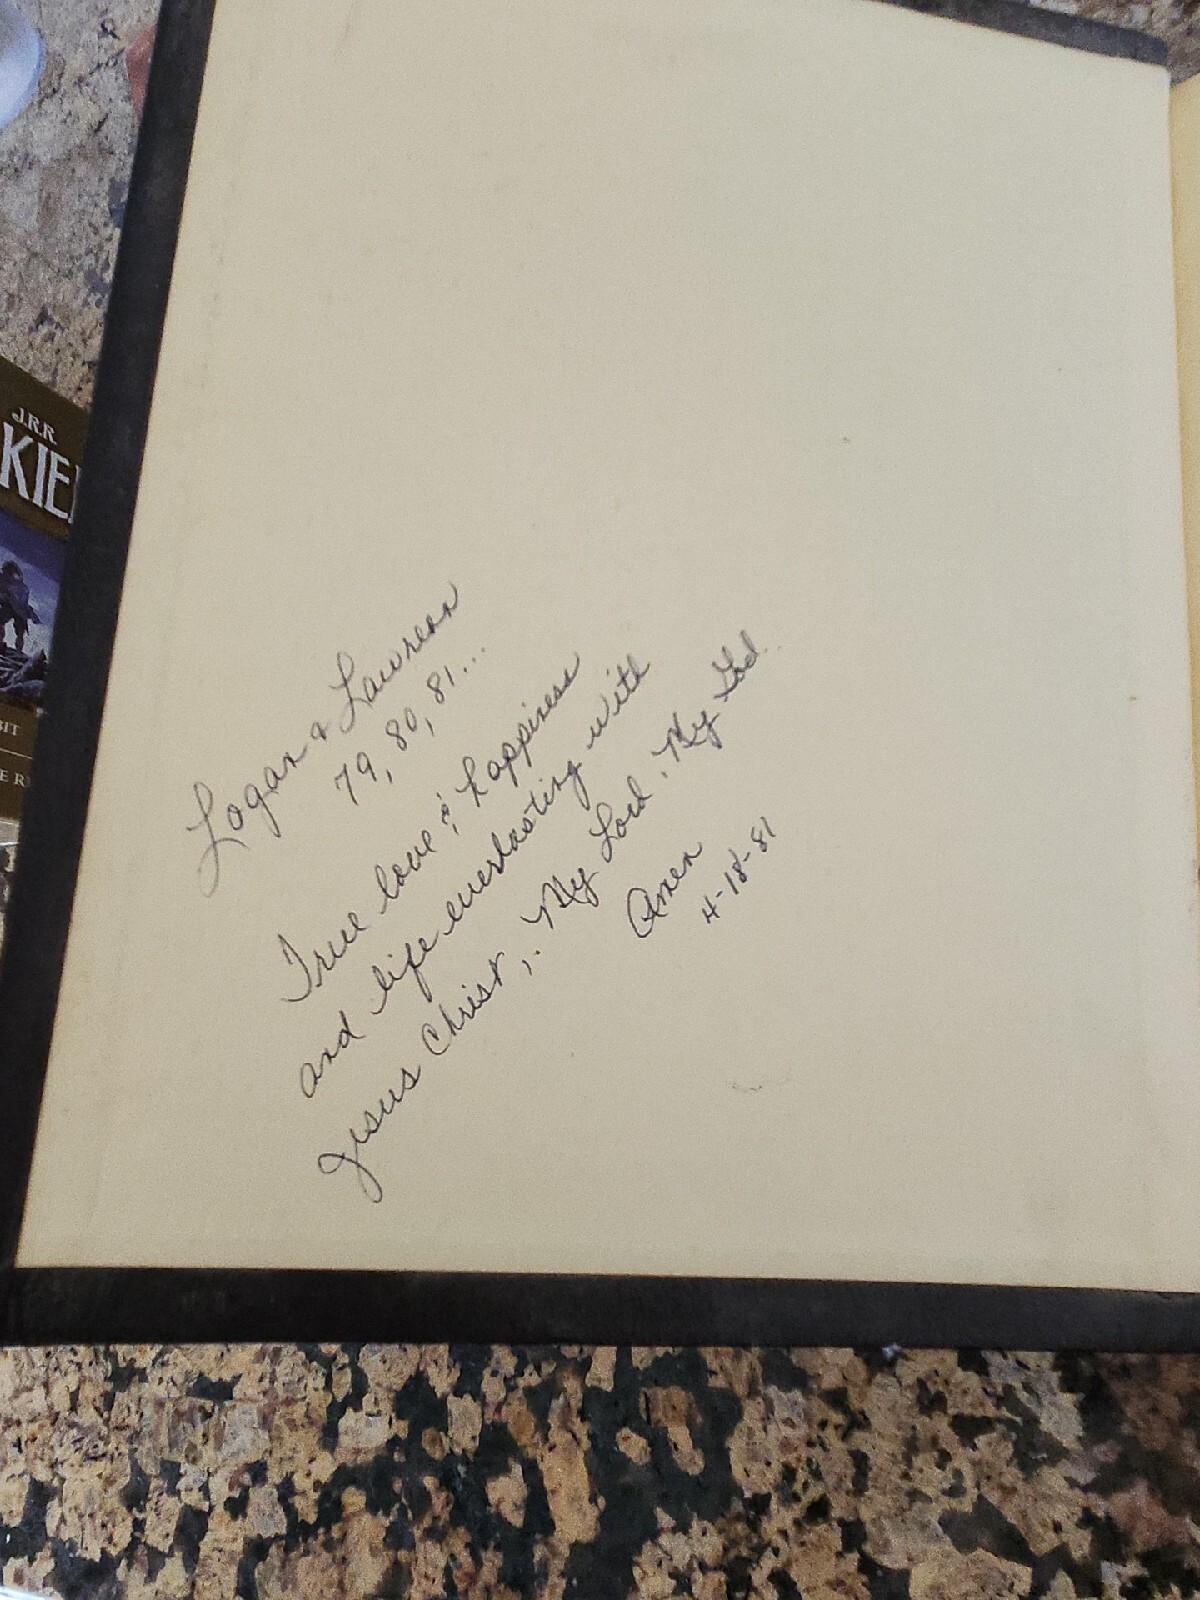 J.R.R.
KIE
BIT
E R
Logan & Lawrean
79, 80, 81...
True love & happiness
and life everlasting with
Jesus Christ, . My Lord . My God.
Amen
4-18-81